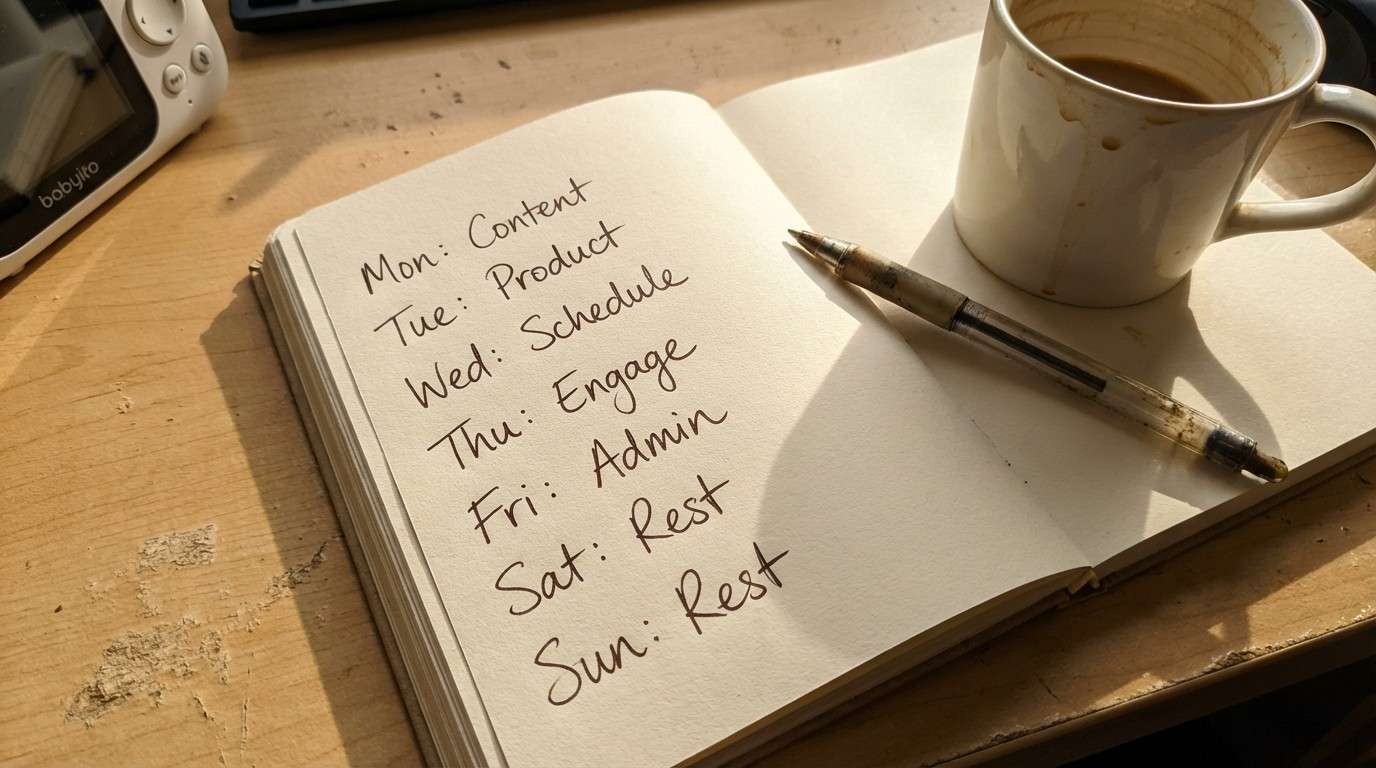 bobyito
Mon: Content
Tue: Product
Wed: Schedule
Thu: Engage
Fri: Admin
Sat: Rest
Sun: Rest